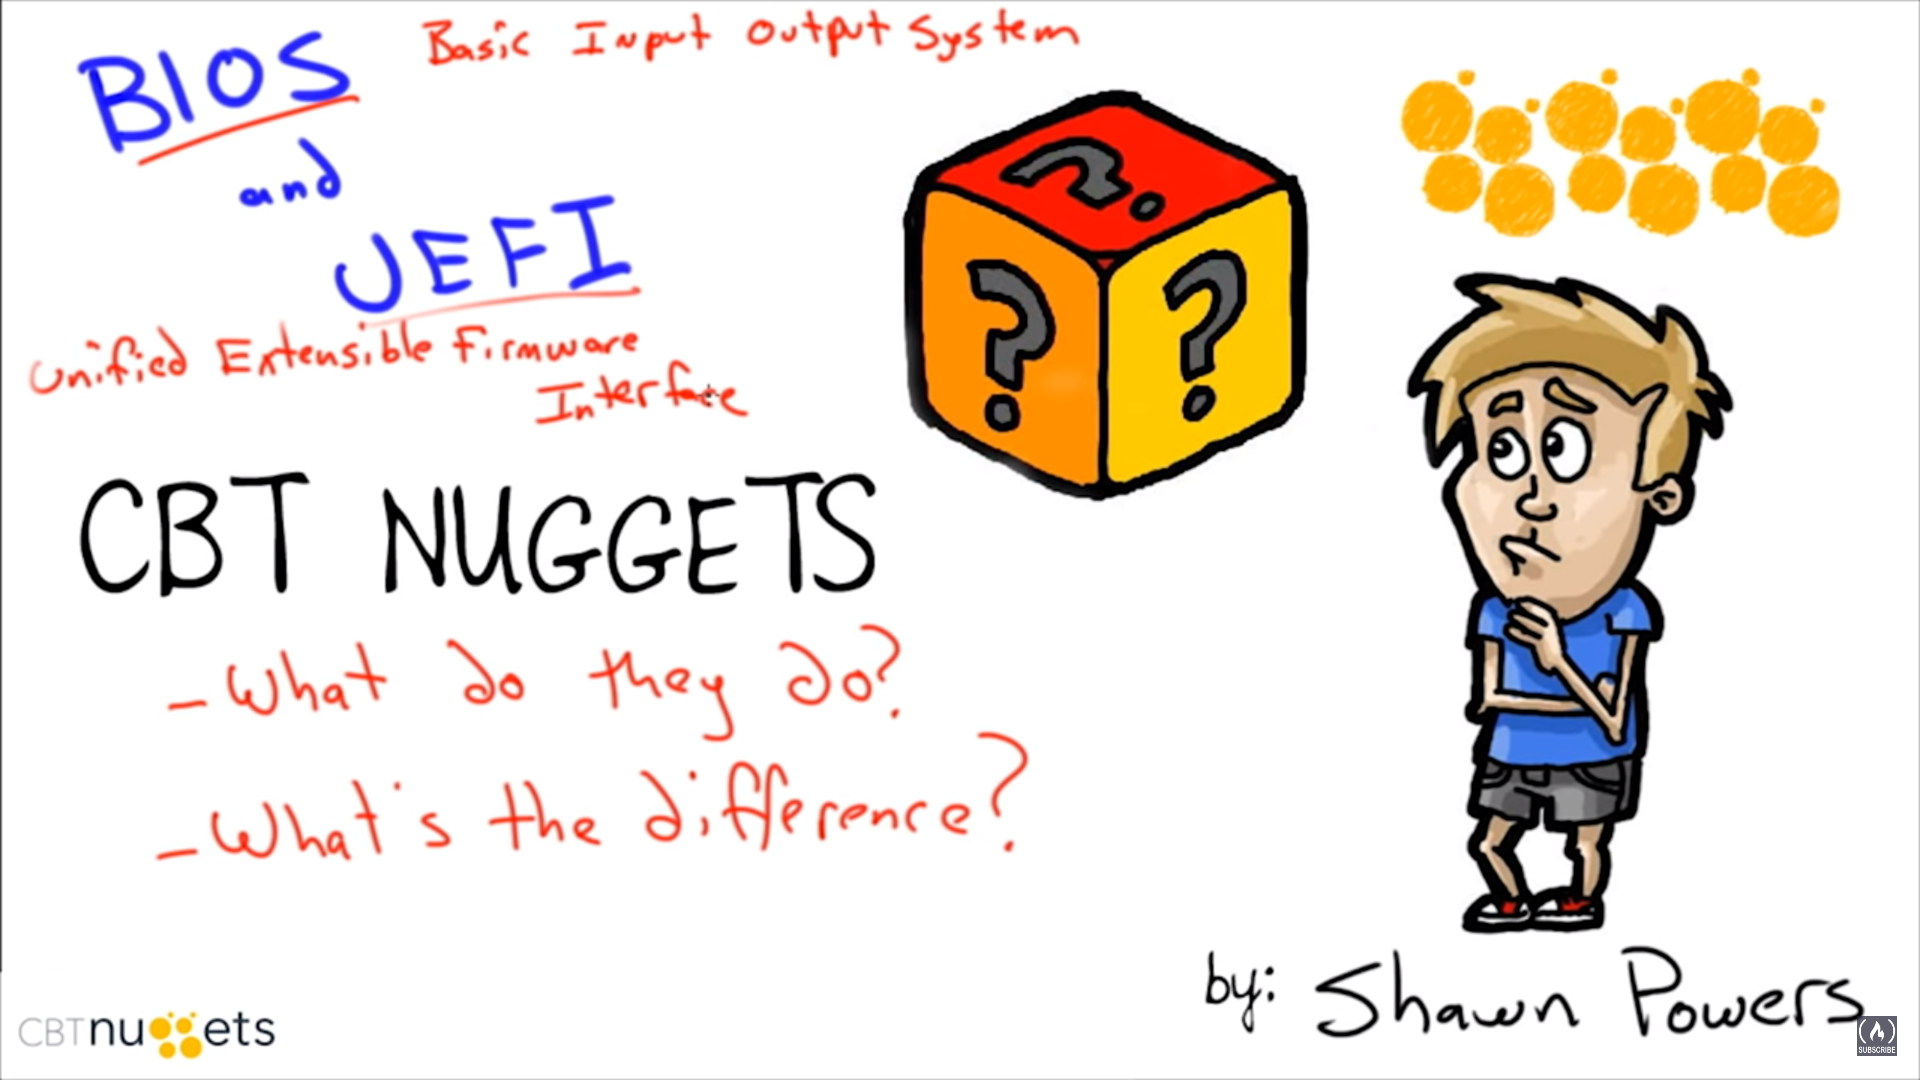 BIOS
Basic Input Output System
and
UEFI
Unified Extensible Firmware
Interface
? ? ?
CBT NUGGETS
- What do they do?
- What's the difference?
by: Shawn Powers
CBTnuggets
SUBSCRIBE